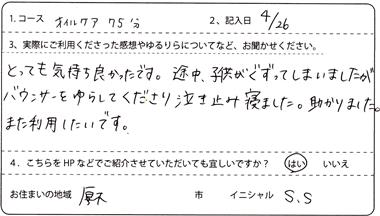 1.コース オイルケア 75分 2、記入日 4/26
3、実際にご利用くださった感想やゆるりらについてなど、お聞かせください。
とっても気持ち良かったです。途中、子供がぐずってしまいましたが
バウンサーをゆらしてくださり泣き止み寝ました。助かりました。
また利用したいです。
4．こちらをHPなどでご紹介させていただいても宜しいですか？ はい いいえ
お住まいの地域 厚木 市 イニシャル S.S